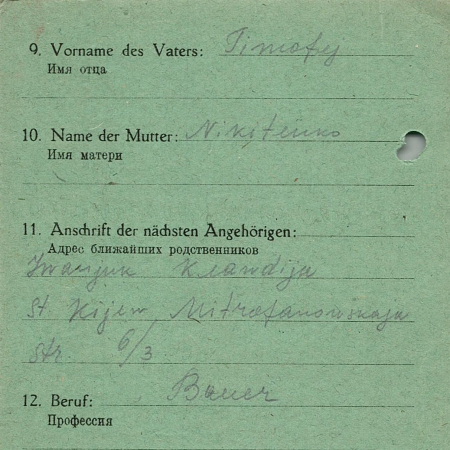 9. Vorname des Vaters: Timofej
Имя отца
10. Name der Mutter: Nikitenko
Имя матери
11. Anschrift der nächsten Angehörigen:
Адрес ближайших родственников
Iwanjuk Klawdija
St. Kijew Mitrofanowskaja
str. 6/3
12. Beruf: Bauer
Профессия